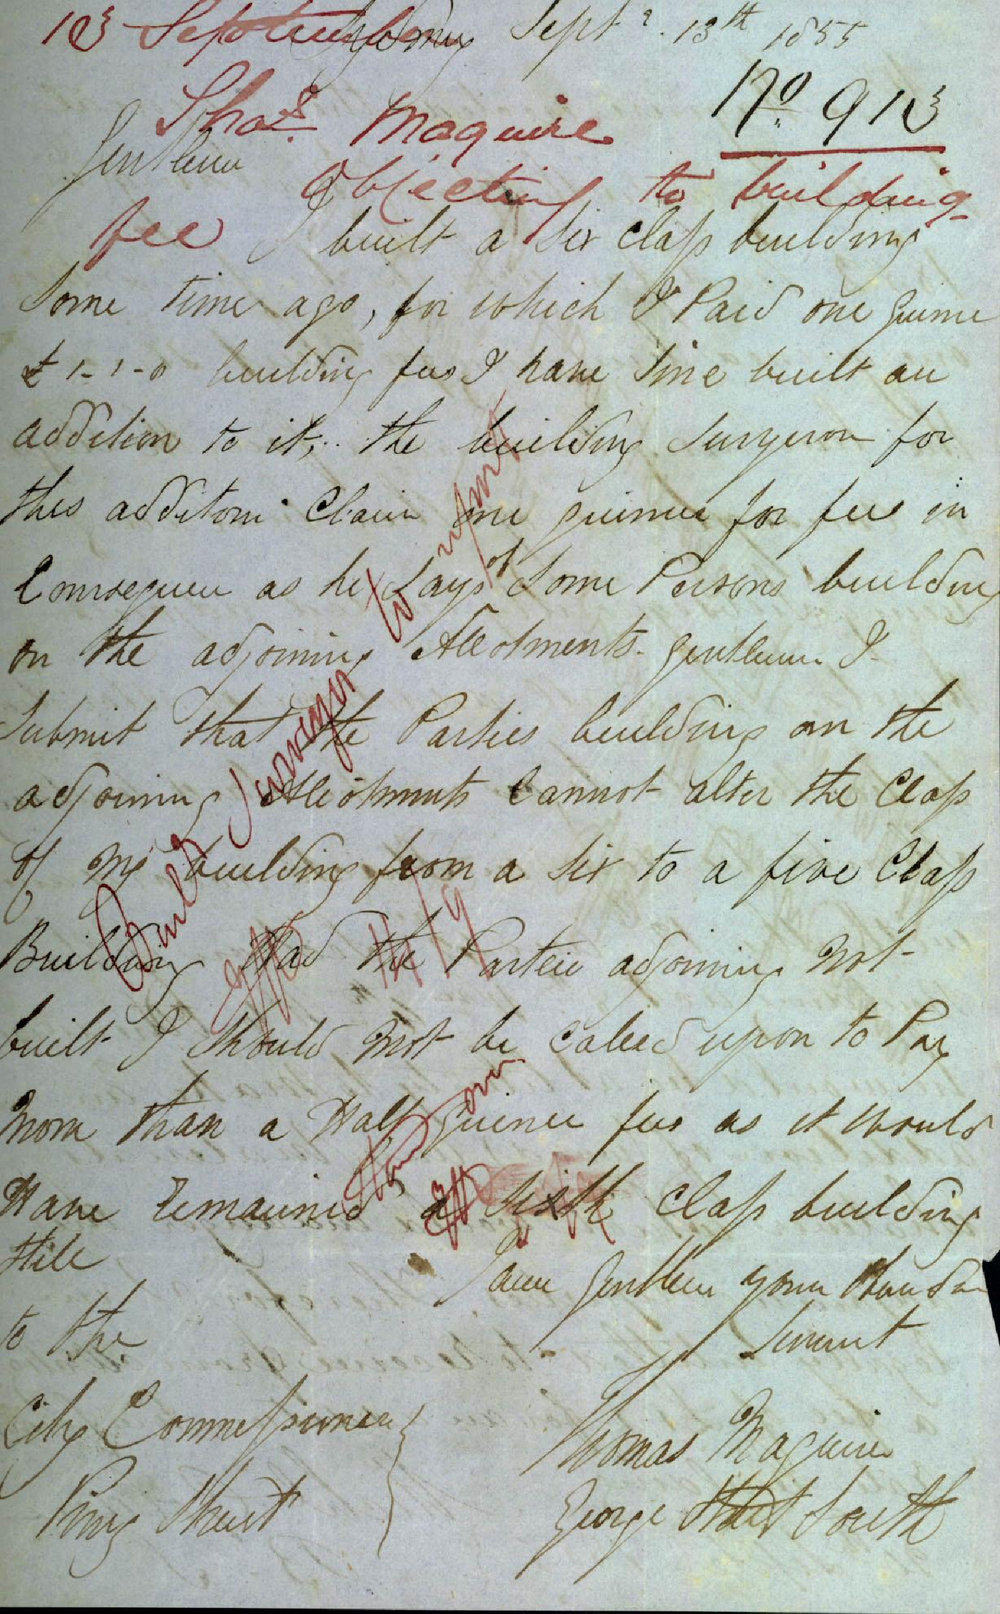 13 September
Sydney Sept^r. 13th 1855
No 913
Thos. Maguire
Gentlemen
Objecting to building
fee
I built a Six Class building
Some time ago, for which I Paid one Guinea
£1-1-0 building fees I have Sinc built an
addition to it; the building Surveyor for
this addition Claim one guinea for fees in
Consequence as he Says of Some Persons building
on the adjoining Allotments. Gentlemen I
Submit that the Parties building on the
adjoining Allotments Cannot alter the Class
of my building from a Six to a five Class
Building Had the Parties adjoining Not
built I Should Not be Called upon to Pay
More than a Half Guinea fees as it would
Have Remained a Sixth Class building
Still
I am Gentlemen your Humble
Servant
to the
City Commissioners
Pitt Street
Thomas Maguire
George Street South
Building Surveyor to report
14/9